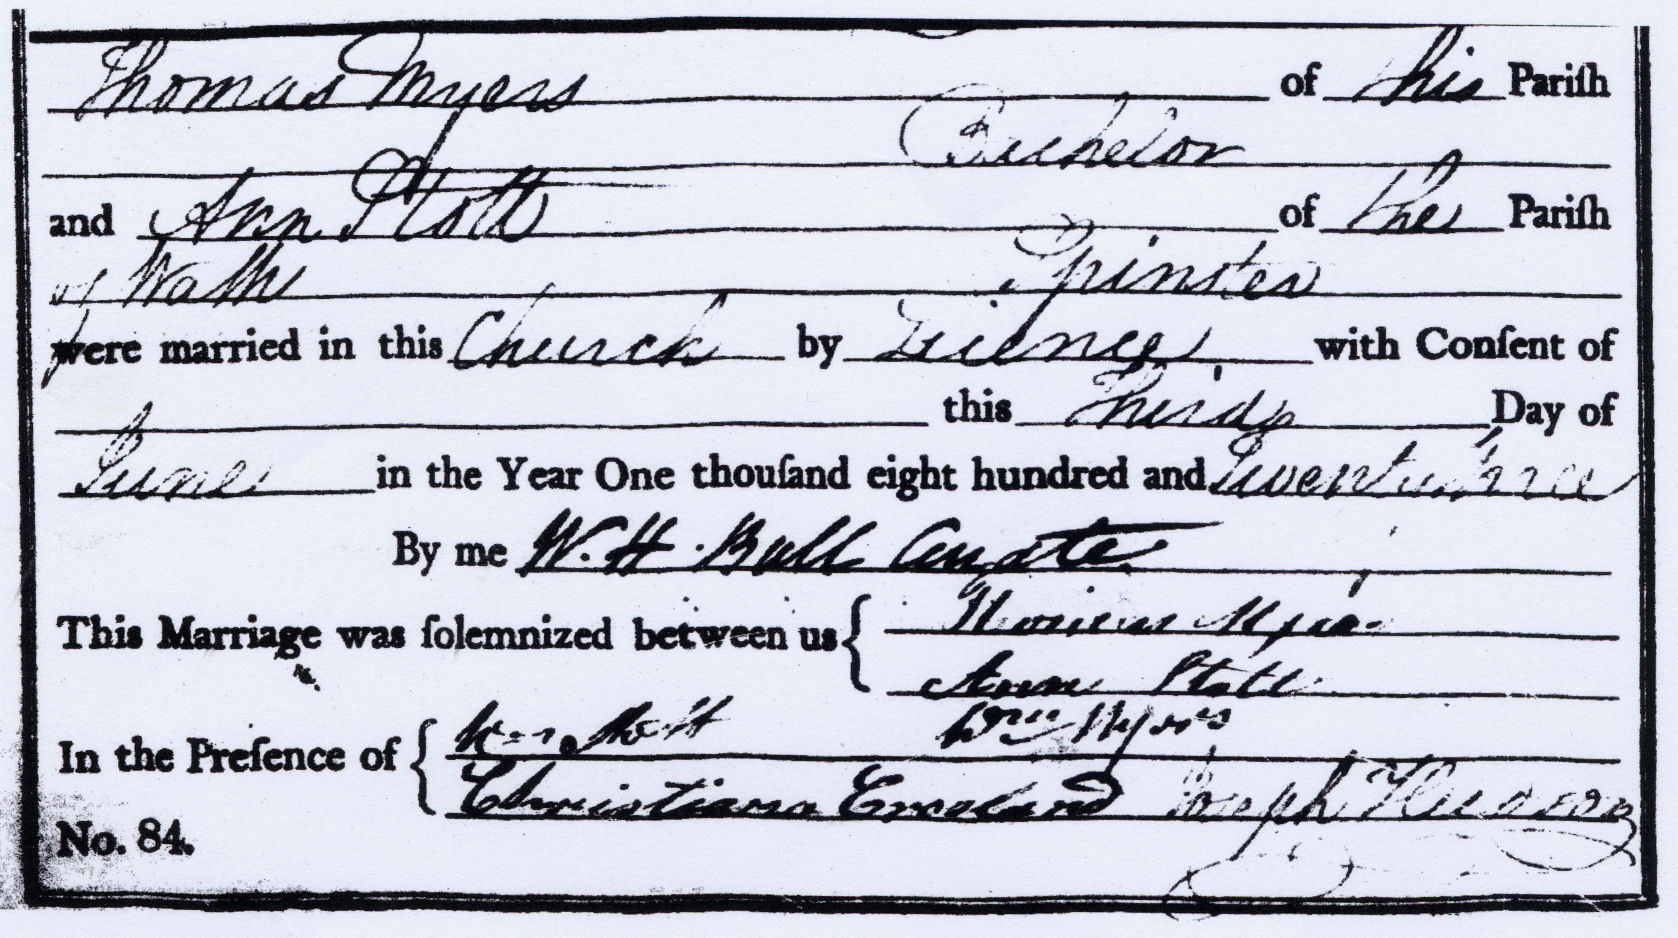 Thomas Myers of this Pariſh
Bachelor
and Ann Stott of the Pariſh
of Wath Spinster
were married in this Church by Licence with Conſent of
this Third Day of
June in the Year One thouſand eight hundred and Twenty three
By me W. H. Bull Curate
This Marriage was ſolemnized between us { Thomas Myers
Ann Stott
In the Preſence of { Stott Wm Myers
Christiana Joseph Hudson
No. 84.